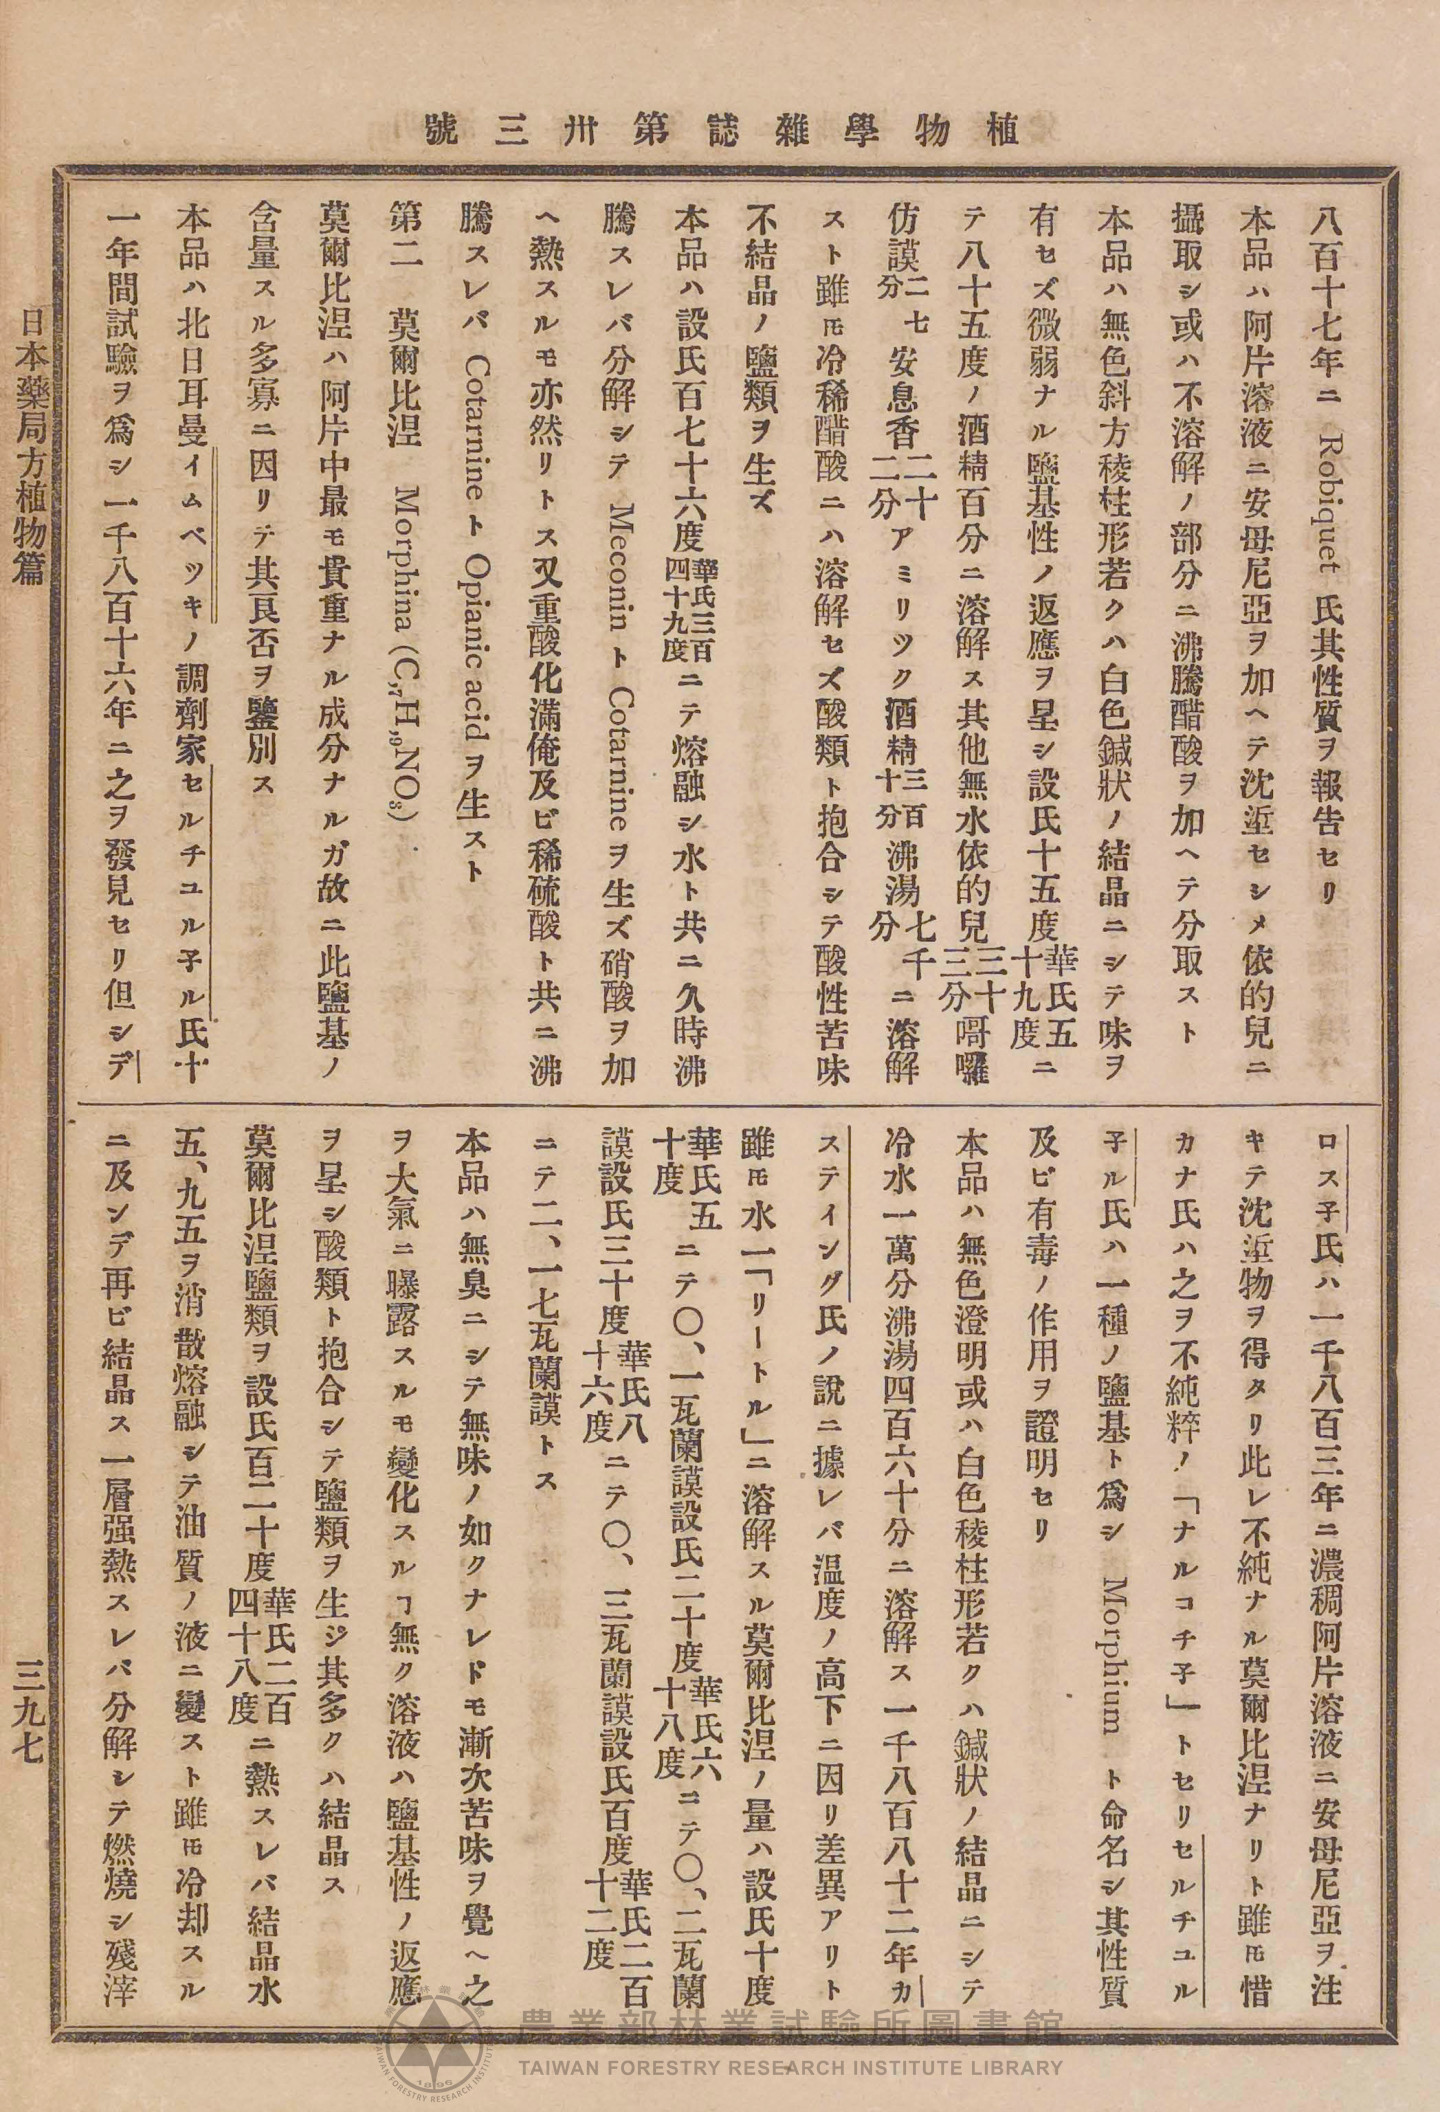 植物學雜誌第卅三號
八百十七年ニ Robiquet 氏其性質ヲ報告セリ
本品ハ阿片溶液ニ安母尼亞ヲ加ヘテ沈㘴セシメ依的兒ニ
攝取シ或ハ不溶解ノ部分ニ沸騰醋酸ヲ加ヘテ分取スト
本品ハ無色斜方稜柱形若クハ白色鍼狀ノ結晶ニシテ味ヲ
有セズ微弱ナル鹽基性ノ返應ヲ呈シ設氏十五度華氏五十九度ニ
テ八十五度ノ酒精百分ニ溶解ス其他無水依的兒三十三分嘚囉
仿謨二七分安息香二十二分アミリツク酒精三百十分沸湯七千分ニ溶解
スト雖𪜈冷稀醋酸ニハ溶解セズ酸類ト抱合シテ酸性苦味
不結晶ノ鹽類ヲ生ズ
本品ハ設氏百七十六度華氏三百四十九度ニテ熔融シ水ト共ニ久時沸
騰スレバ分解シテ Meconin ト Cotarnine ヲ生ズ硝酸ヲ加
ヘ熱スルモ亦然リトス又重酸化滿俺及ビ稀硫酸ト共ニ沸
騰スレバ Cotarnine ト Opianic acid ヲ生スト
第二 莫爾比涅 Morphina (C₁₇H₁₉NO₃)
莫爾比涅ハ阿片中最モ貴重ナル成分ナルガ故ニ此鹽基ノ
含量スル多寡ニ因リテ其良否ヲ鑒別ス
本品ハ北日耳曼イムベツキノ調劑家セルチユル子ル氏十
一年間試驗ヲ爲シ一千八百十六年ニ之ヲ發見セリ但シデ
ロス子氏ハ一千八百三年ニ濃稠阿片溶液ニ安母尼亞ヲ注
キテ沈㘴物ヲ得タリ此レ不純ナル莫爾比涅ナリト雖𪜈惜
カナ氏ハ之ヲ不純粹ノ「ナルコチ子」トセリセルチユル
子ル氏ハ一種ノ鹽基ト爲シ Morphium ト命名シ其性質
及ビ有毒ノ作用ヲ證明セリ
本品ハ無色澄明或ハ白色稜柱形若クハ鍼狀ノ結晶ニシテ
冷水一萬分沸湯四百六十分ニ溶解ス一千八百八十二年カ
スティング氏ノ說ニ據レバ温度ノ高下ニ因リ差異アリト
雖𪜈水一「リートル」ニ溶解スル莫爾比涅ノ量ハ設氏十度
華氏五十度ニテ〇、一瓦蘭謨設氏二十度華氏六十八度ニテ〇、二瓦蘭
謨設氏三十度華氏八十六度ニテ〇、三瓦蘭謨設氏百度華氏二百十二度
ニテ二、一七瓦蘭謨トス
本品ハ無臭ニシテ無味ノ如クナレドモ漸次苦味ヲ覺ヘ之
ヲ大氣ニ曝露スルモ變化スルヿ無ク溶液ハ鹽基性ノ返應
ヲ呈シ酸類ト抱合シテ鹽類ヲ生ジ其多クハ結晶ス
莫爾比涅鹽類ヲ設氏百二十度華氏二百四十八度ニ熱スレバ結晶水
五、九五ヲ消散熔融シテ油質ノ液ニ變スト雖𪜈冷却スル
ニ及ンデ再ビ結晶ス一層强熱スレバ分解シテ燃燒シ殘滓
日本藥局方植物篇
三九七
農業部林業試驗所圖書館
TAIWAN FORESTRY RESEARCH INSTITUTE LIBRARY